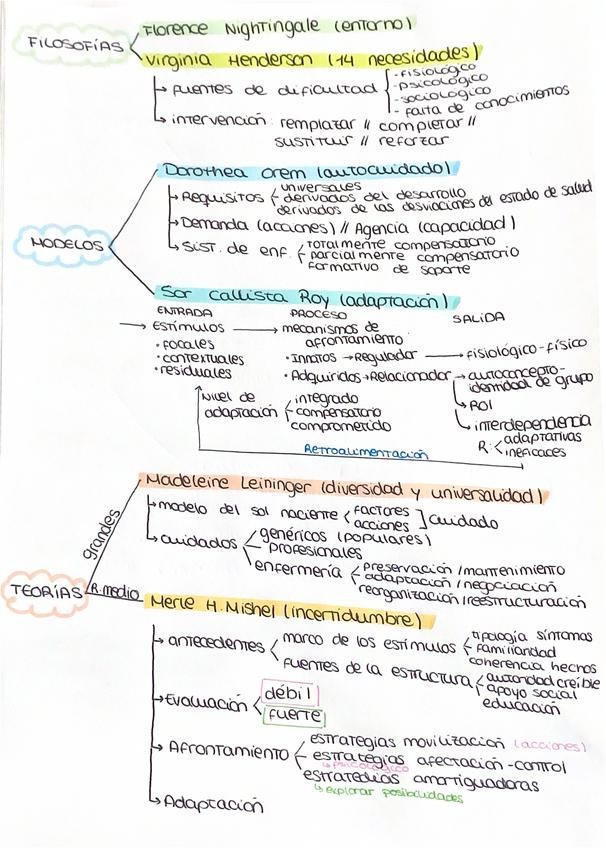 FILOSOFÍAS
Florence Nightingale (entorno)
Virginia Henderson (14 necesidades)
↳ fuentes de dificultad
- fisiológico
- psicológico
- sociológico
- falta de conocimientos
↳ intervención: remplazar // completar //
sustituir // reforzar
MODELOS
Dorothea Orem (autocuidado)
↳ Requisitos
universales
derivados del desarrollo
derivados de las desviaciones del estado de salud
↳ Demanda (acciones) // Agencia (capacidad)
↳ Sist. de enf.
totalmente compensatorio
parcialmente compensatorio
formativo de soporte
Sor Callista Roy (adaptación)
ENTRADA PROCESO SALIDA
→ Estímulos → mecanismos de
afrontamiento
• focales
• contextuales
• residuales
• Innatos → Regulador → fisiológico-físico
• Adquiridos → Relacionador → autoconcepto-
identidad de grupo
↳ ROl
↳ interdependencia
Nivel de
adaptación
integrado
compensatorio
comprometido
R:
adaptativas
ineficaces
Retroalimentación
TEORÍAS
grandes
Madeleine Leininger (diversidad y universalidad)
↳ modelo del sol naciente
factores
acciones
] cuidado
↳ cuidados
genéricos (populares)
profesionales
enfermería
preservación/mantenimiento
adaptación/negociación
reorganización/reestructuración
R. medio
Merle H. Mishel (incertidumbre)
→ antecedentes
marco de los estímulos
tipología síntomas
familiaridad
coherencia hechos
fuentes de la estructura
autoridad creíble
apoyo social
educación
→ Evaluación
débil
fuerte
→ Afrontamiento
estrategias movilización (acciones)
estrategias afectación-control
↳ psicológico
estrategias amortiguadoras
↳ explorar posibilidades
↳ Adaptación